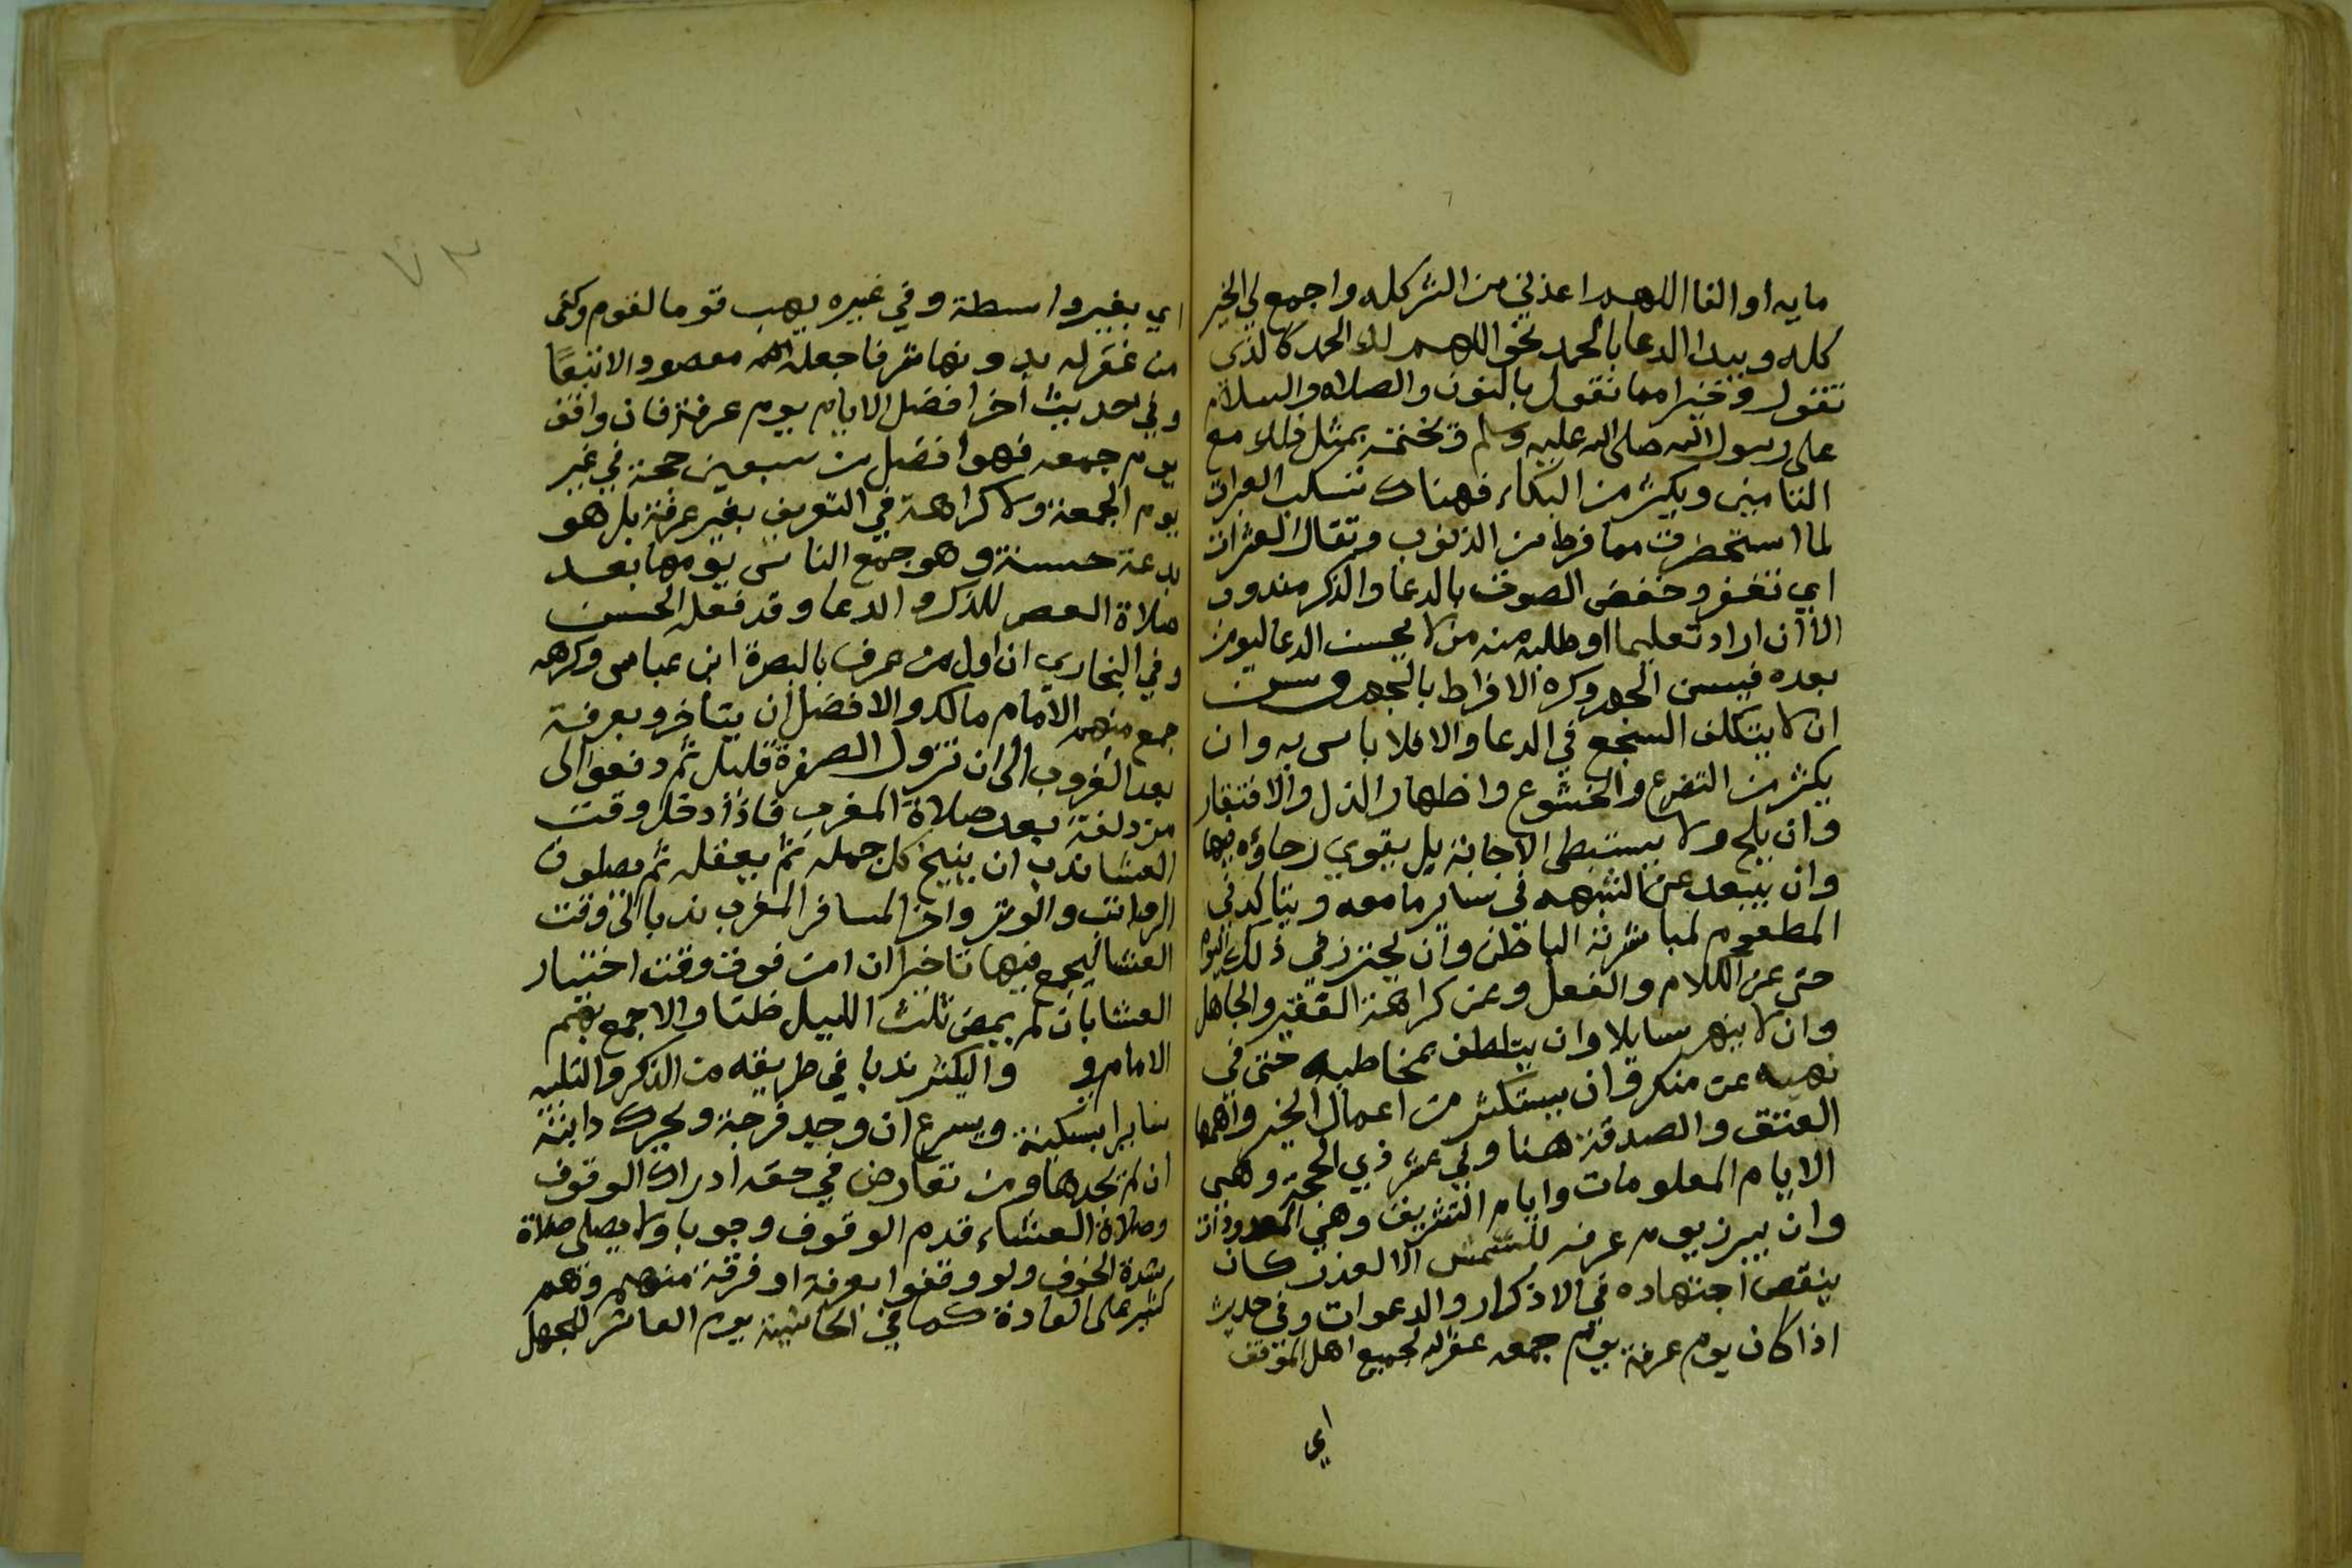 مايه او الفا اللهم اعذني من الشر كله واجمع لي الخير
كله ويبدا الدعا بالحمد نحو اللهم لك الحمد كالذي
تقول وخيرا مما نقول بالنون والصلاه والسلام
على رسول الله صلى الله عليه وسلم ويختمه بمثل ذلك مع
التامين ويكثر من البكاء فهناك تسكب العبرات
لما استحضرت مما فرط من الذنوب وتقال العثرات
اي تغفر وخفض الصوت بالدعا والذكر مندوب
الا ان اراد تعليما او طلبه منه من لا يحسن الدعا ليومن
بعده فيسن الجهر وكره الافراط بالجهر وسن
ان لا يتكلف السجع في الدعا والا فلا باس به وان
يكثر من التضرع والخشوع واظهار الذل والافتقار
وان يلح ولا يستبطي الاجابة بل يقوي رجاؤه فيها
وان يبعد عن الشبهه في ساير ما معه ويتاكد في
المطعوم لمباشرته الباطن وان يحترز في ذلك اليوم
حتى عن الكلام والفعل وعن كراهة الفقير والجاهل
وان لا ينهر سايلا وان يتلطف بمخاطبه حتى في
نهيه عن منكر وان يستكثر من اعمال الخير واهمها
العتق والصدقة هنا وفي عشر ذي الحجة وهي
الايام المعلومات وايام التشريق وهي المعدودات
وان يبرز يوم عرفه للشمس الا لعذر كان
ينقص اجتهاده في الاذكار والدعوات وفي حديث
اذا كان يوم عرفة يوم جمعه غفر الله لجميع اهل الموقف
اي
اي بغير واسطة وفي غيره يهب قوما لقوم وكفى
من غفر له بدونها شرفا جعله الله مقصودا لا تبعًا
وفي حديث آخر افضل الايام يوم عرفة فان وافق
يوم جمعه فهو افضل من سبعين حجة في غير
يوم الجمعة ولا كراهة في التعريف بغير عرفة بل هو
بدعة حسنة وهو جمع الناس يومها بعد
صلاة العصر للذكر والدعا وقد فعله الحسن
وفي البخاري ان اول من عرف بالبصرة ابن عباس وكرهه
جمع منهم الامام مالك والافضل ان يتاخرو بعرفة
بعد الغروب الى ان تزول الصفرة قليل ثم دفعوا الى
مزدلفة بعد صلاة المغرب فاذا دخل وقت
العشا ندب ان ينيخ كل جمله ثم يعقله ثم يصلون
الرواتب والوتر واخر المسافر المغرب ندبا الى وقت
العشا ليجمع فيها تاخيرا ان امن فوت وقت اختيار
العشا بان لم يمض ثلث الليل ظنا والا جمع بهم
الامام و وليكثر ندبا في طريقه من الذكر والتلبيه
سايرا بسكينة ويسرع ان وجد فرجة ويحرك دابته
ان لم يجدها ومن تعارض في حقه ادراك الوقوف
وصلاة العشاء قدم الوقوف وجوبا ولا يصلي صلاة
شدة الخوف ولو وقفوا بعرفة او فرقة منهم وهم
كثير على العادة كما في الحاشية يوم العاشر للجهل